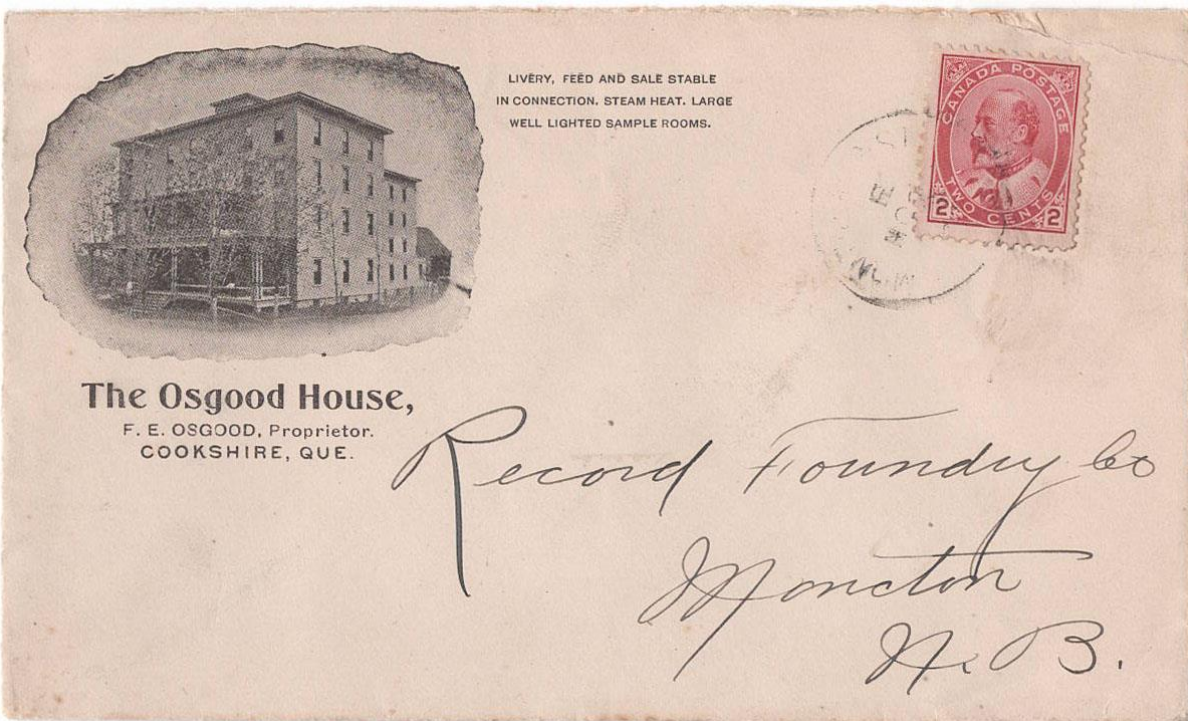 LIVERY, FEED AND SALE STABLE
IN CONNECTION. STEAM HEAT. LARGE
WELL LIGHTED SAMPLE ROOMS.
CANADA POSTAGE
TWO CENTS
2 2
The Osgood House,
F. E. OSGOOD, Proprietor.
COOKSHIRE, QUE.
Record Foundry Co
Moncton
N. B.